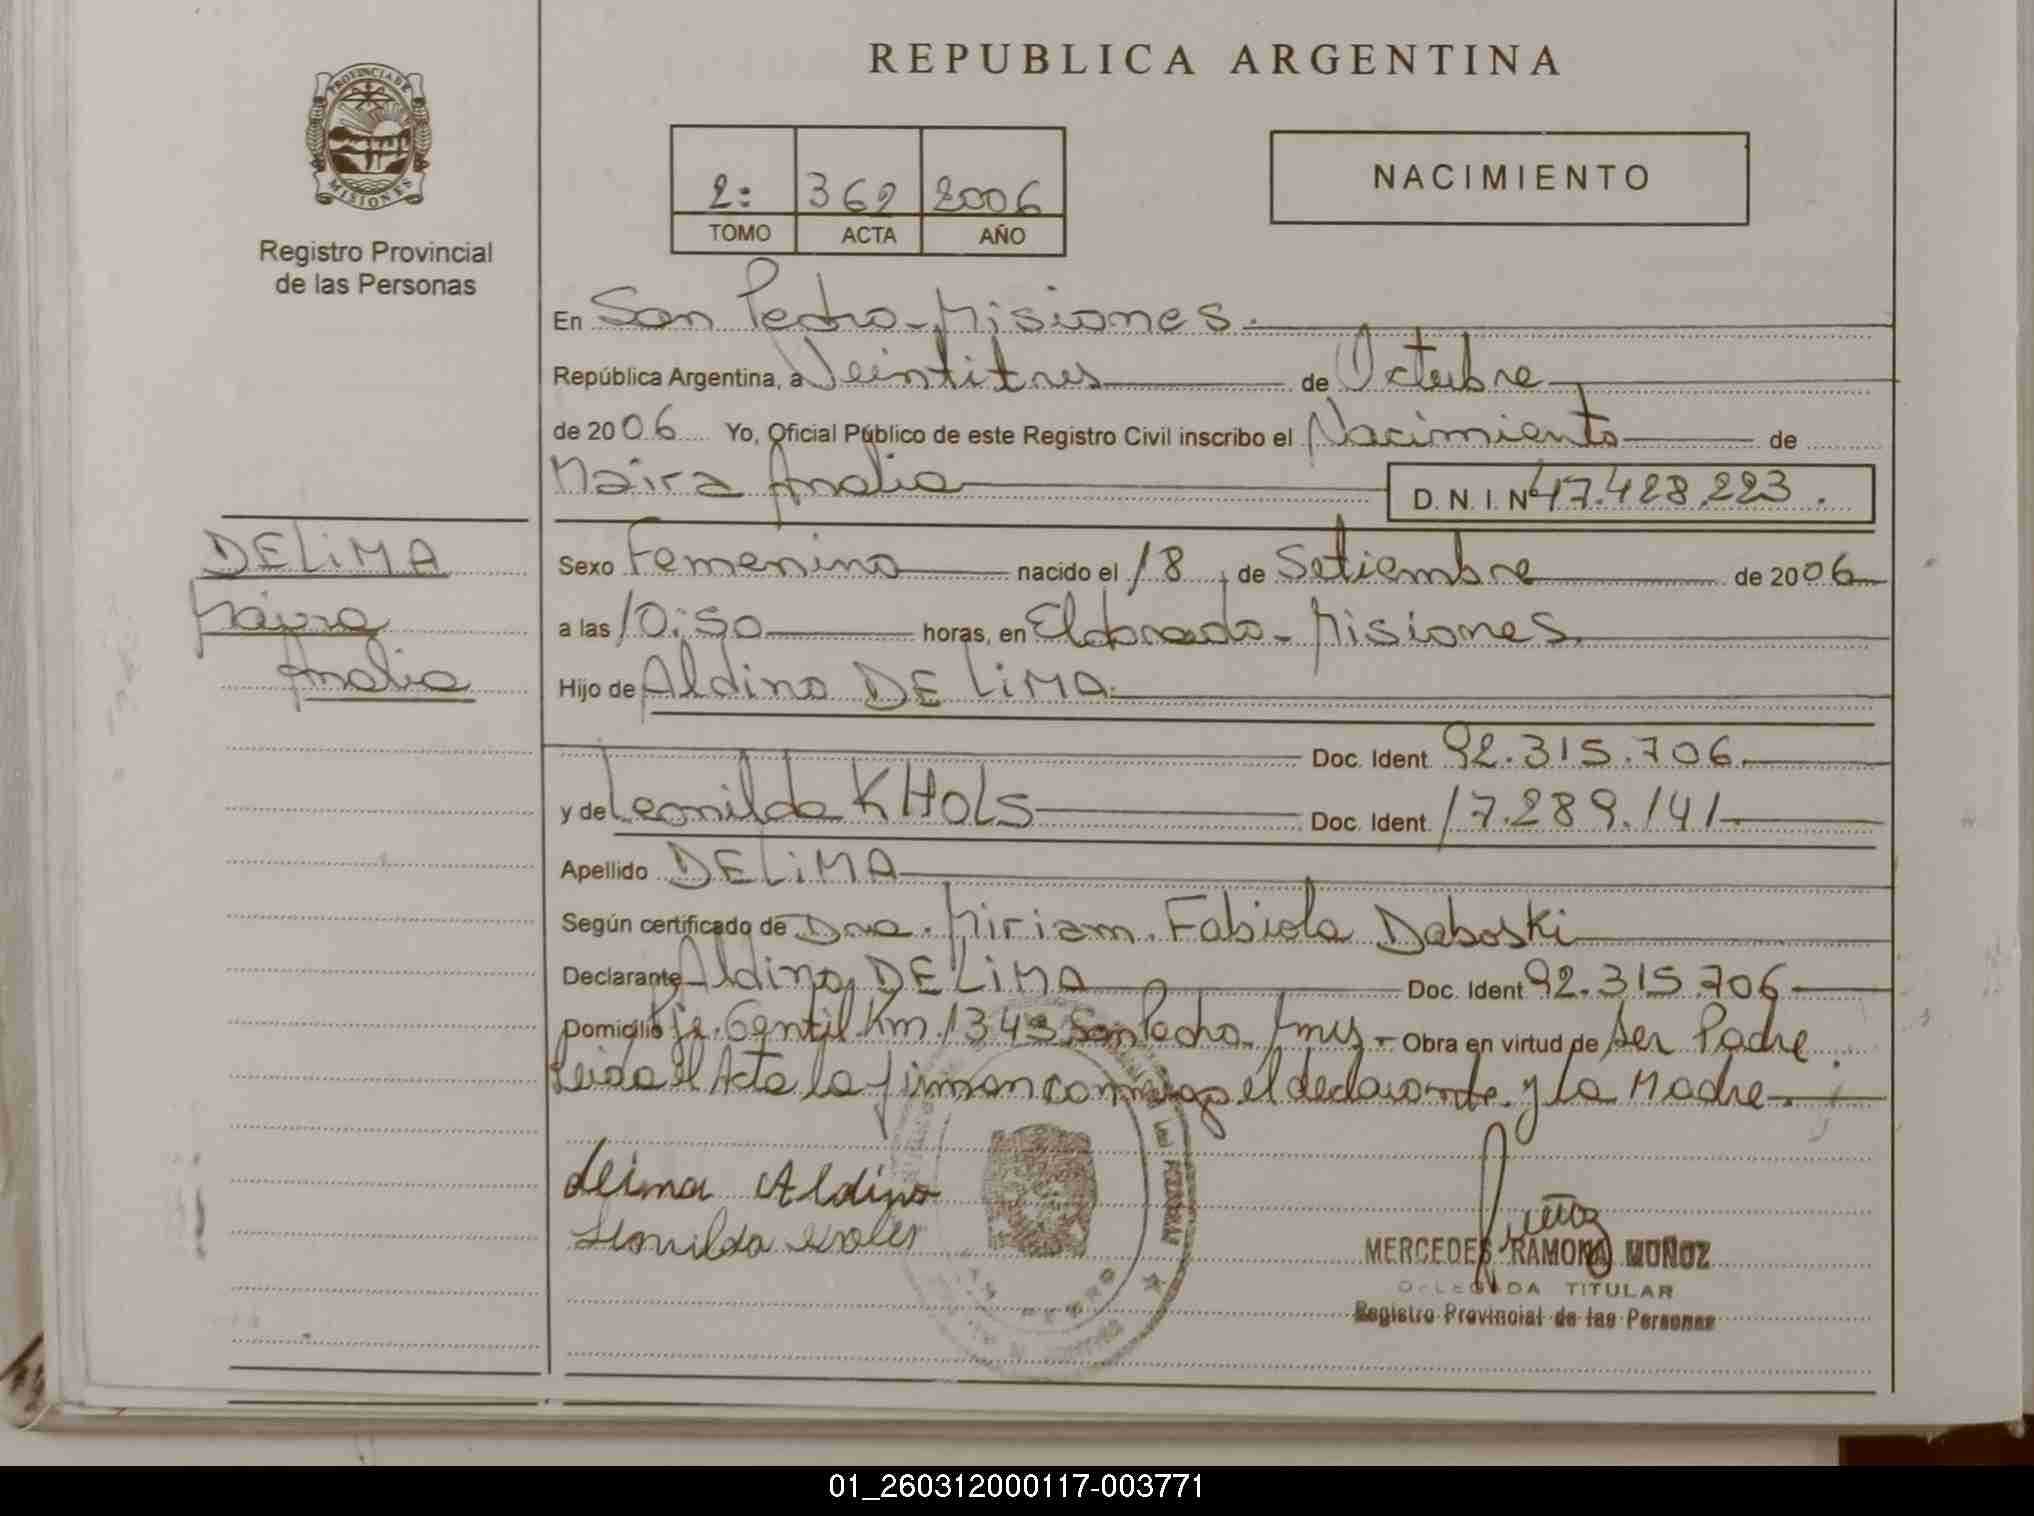 REPUBLICA ARGENTINA
PROVINCIA DE
MISIONES
Registro Provincial
de las Personas
2: 362 2006
TOMO ACTA AÑO
NACIMIENTO
En San Pedro - Misiones.
República Argentina, a Veintitres de Octubre
de 2006 Yo, Oficial Público de este Registro Civil inscribo el Nacimiento de
Maira Analia D. N. I. Nº 47.428.223.
DE LiMA
Analia
Sexo Femenino nacido el 18 de Setiembre de 2006
a las 10:50 horas, en Eldorado - Misiones.
Hijo de Aldino DE LiMA.
Doc. Ident. 92.315.706.
y de Leonilda KHOLS Doc. Ident. 17.289.141.
Apellido DE LiMA
Según certificado de Dra. Miriam. Fabiola Daboski
Declarante Aldino DE LiMA Doc. Ident. 92.315.706
Domicilio Pje. Gentil. Km. 1343 San Pedro. Obra en virtud de Ser Padre.
Leida el Acta la firman conmigo el declarante y la Madre.
Aldino
MERCEDES RAMONA MUÑOZ
DELEGADA TITULAR
Registro Provincial de las Personas
01_260312000117-003771